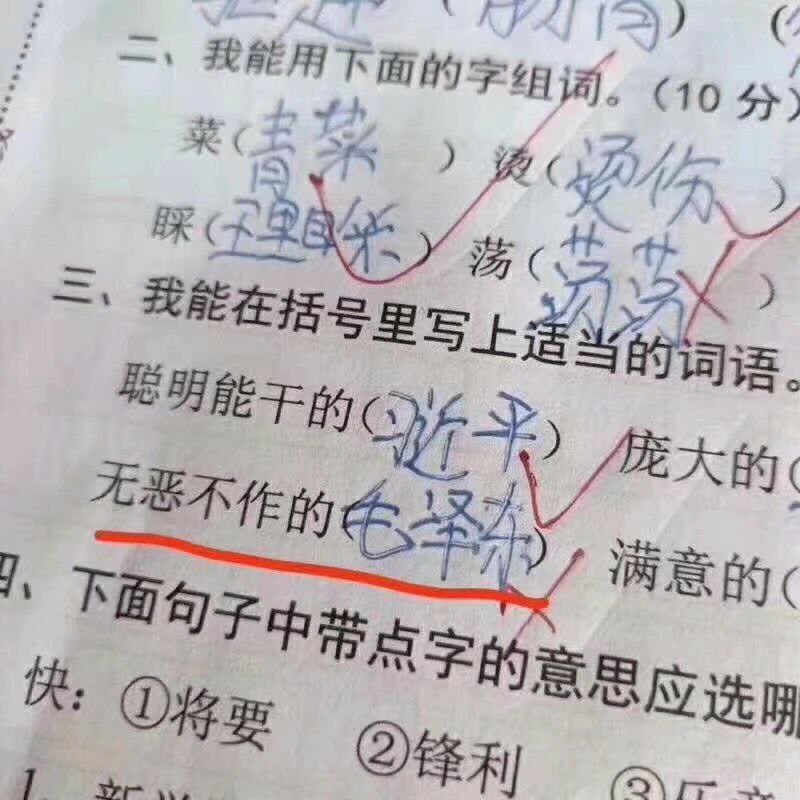 二、我能用下面的字组词。(10分)
菜(青菜) 烫(烫伤)
睬(理睬) 荡(荡荡)
三、我能在括号里写上适当的词语。
聪明能干的(习近平) 庞大的(
无恶不作的(毛泽东) 满意的(
四、下面句子中带点字的意思应选哪
快:①将要 ②锋利 ③乐意
1.